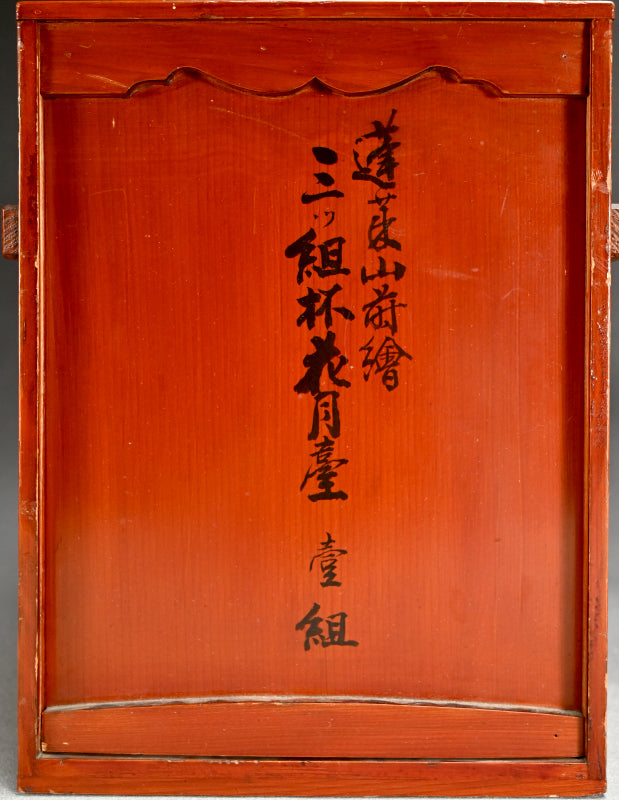 蓬莱山蒔繪
三ッ組杯花月臺 壹組